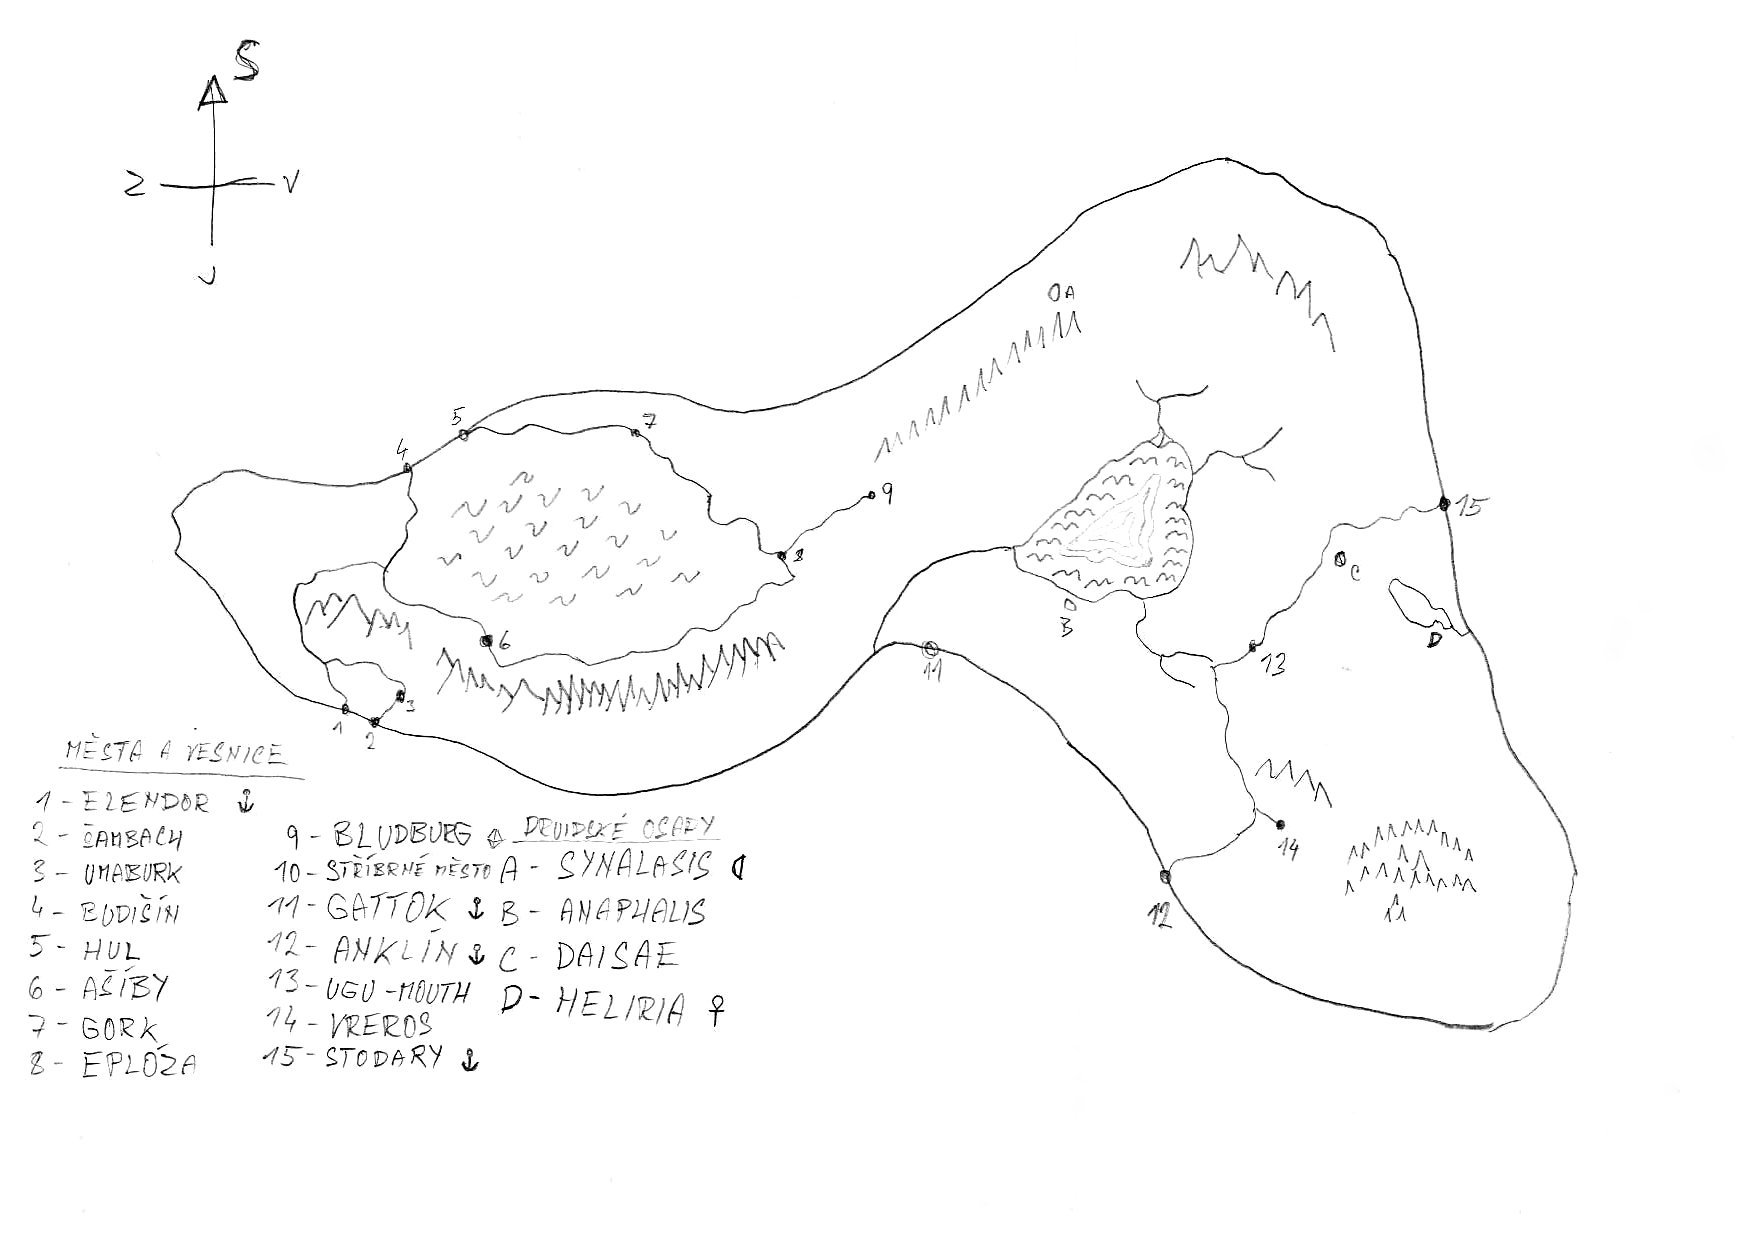 S
Z V
J
A
5
7
4
9
15
8
C
B
6
D
13
11
3
1
2
14
12
MĚSTA A VESNICE
1 - ELENDOR
2 - ČAMBACH
3 - UMABURK
4 - BUDIŠÍN
5 - HUL
6 - AŠÍBY
7 - GORK
8 - EPLÓŽA
9 - BLUDBURG
10 - STŘÍBRNÉ MĚSTO
11 - GATTOK
12 - ANKLÍN
13 - UGU-MOUTH
14 - VREROS
15 - STODARY
DRUIDSKÉ OSADY
A - SYNALASIS
B - ANAPHALIS
C - DAISAE
D - HELIRIA